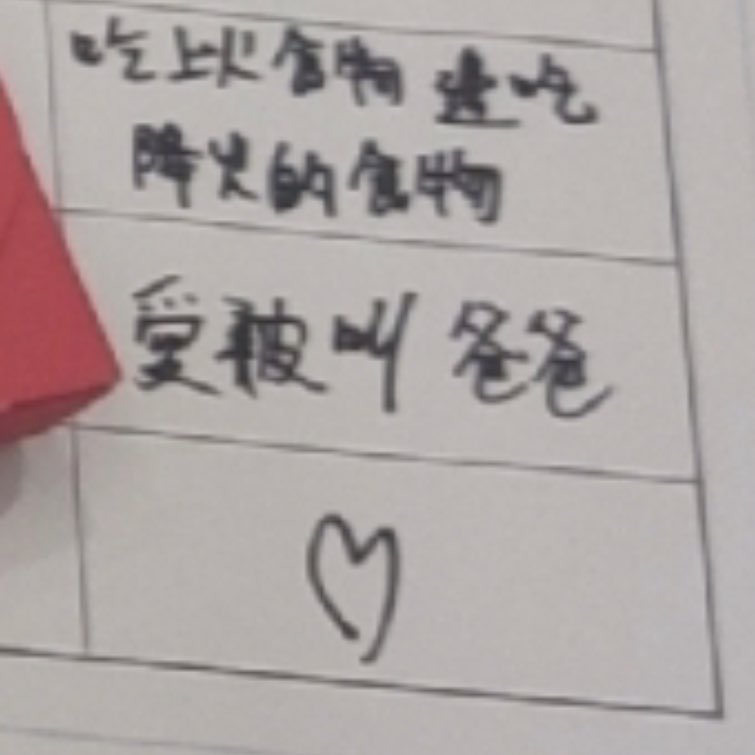 吃上火食物 邊吃
降火的食物
愛被叫爸爸